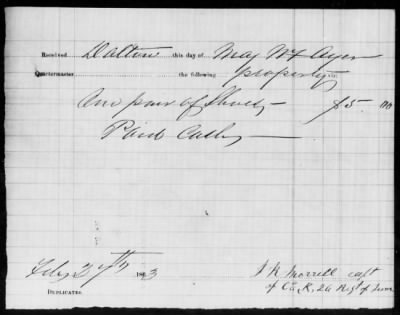 Received Dalton this day of Maj Wm Ayer
Quartermaster the following property
One pair of Shoes $5 00
Paid Cash
Feby 27th 1863
Morrell Capt
DUPLICATES of Co. K, 26 Regt of Tenn